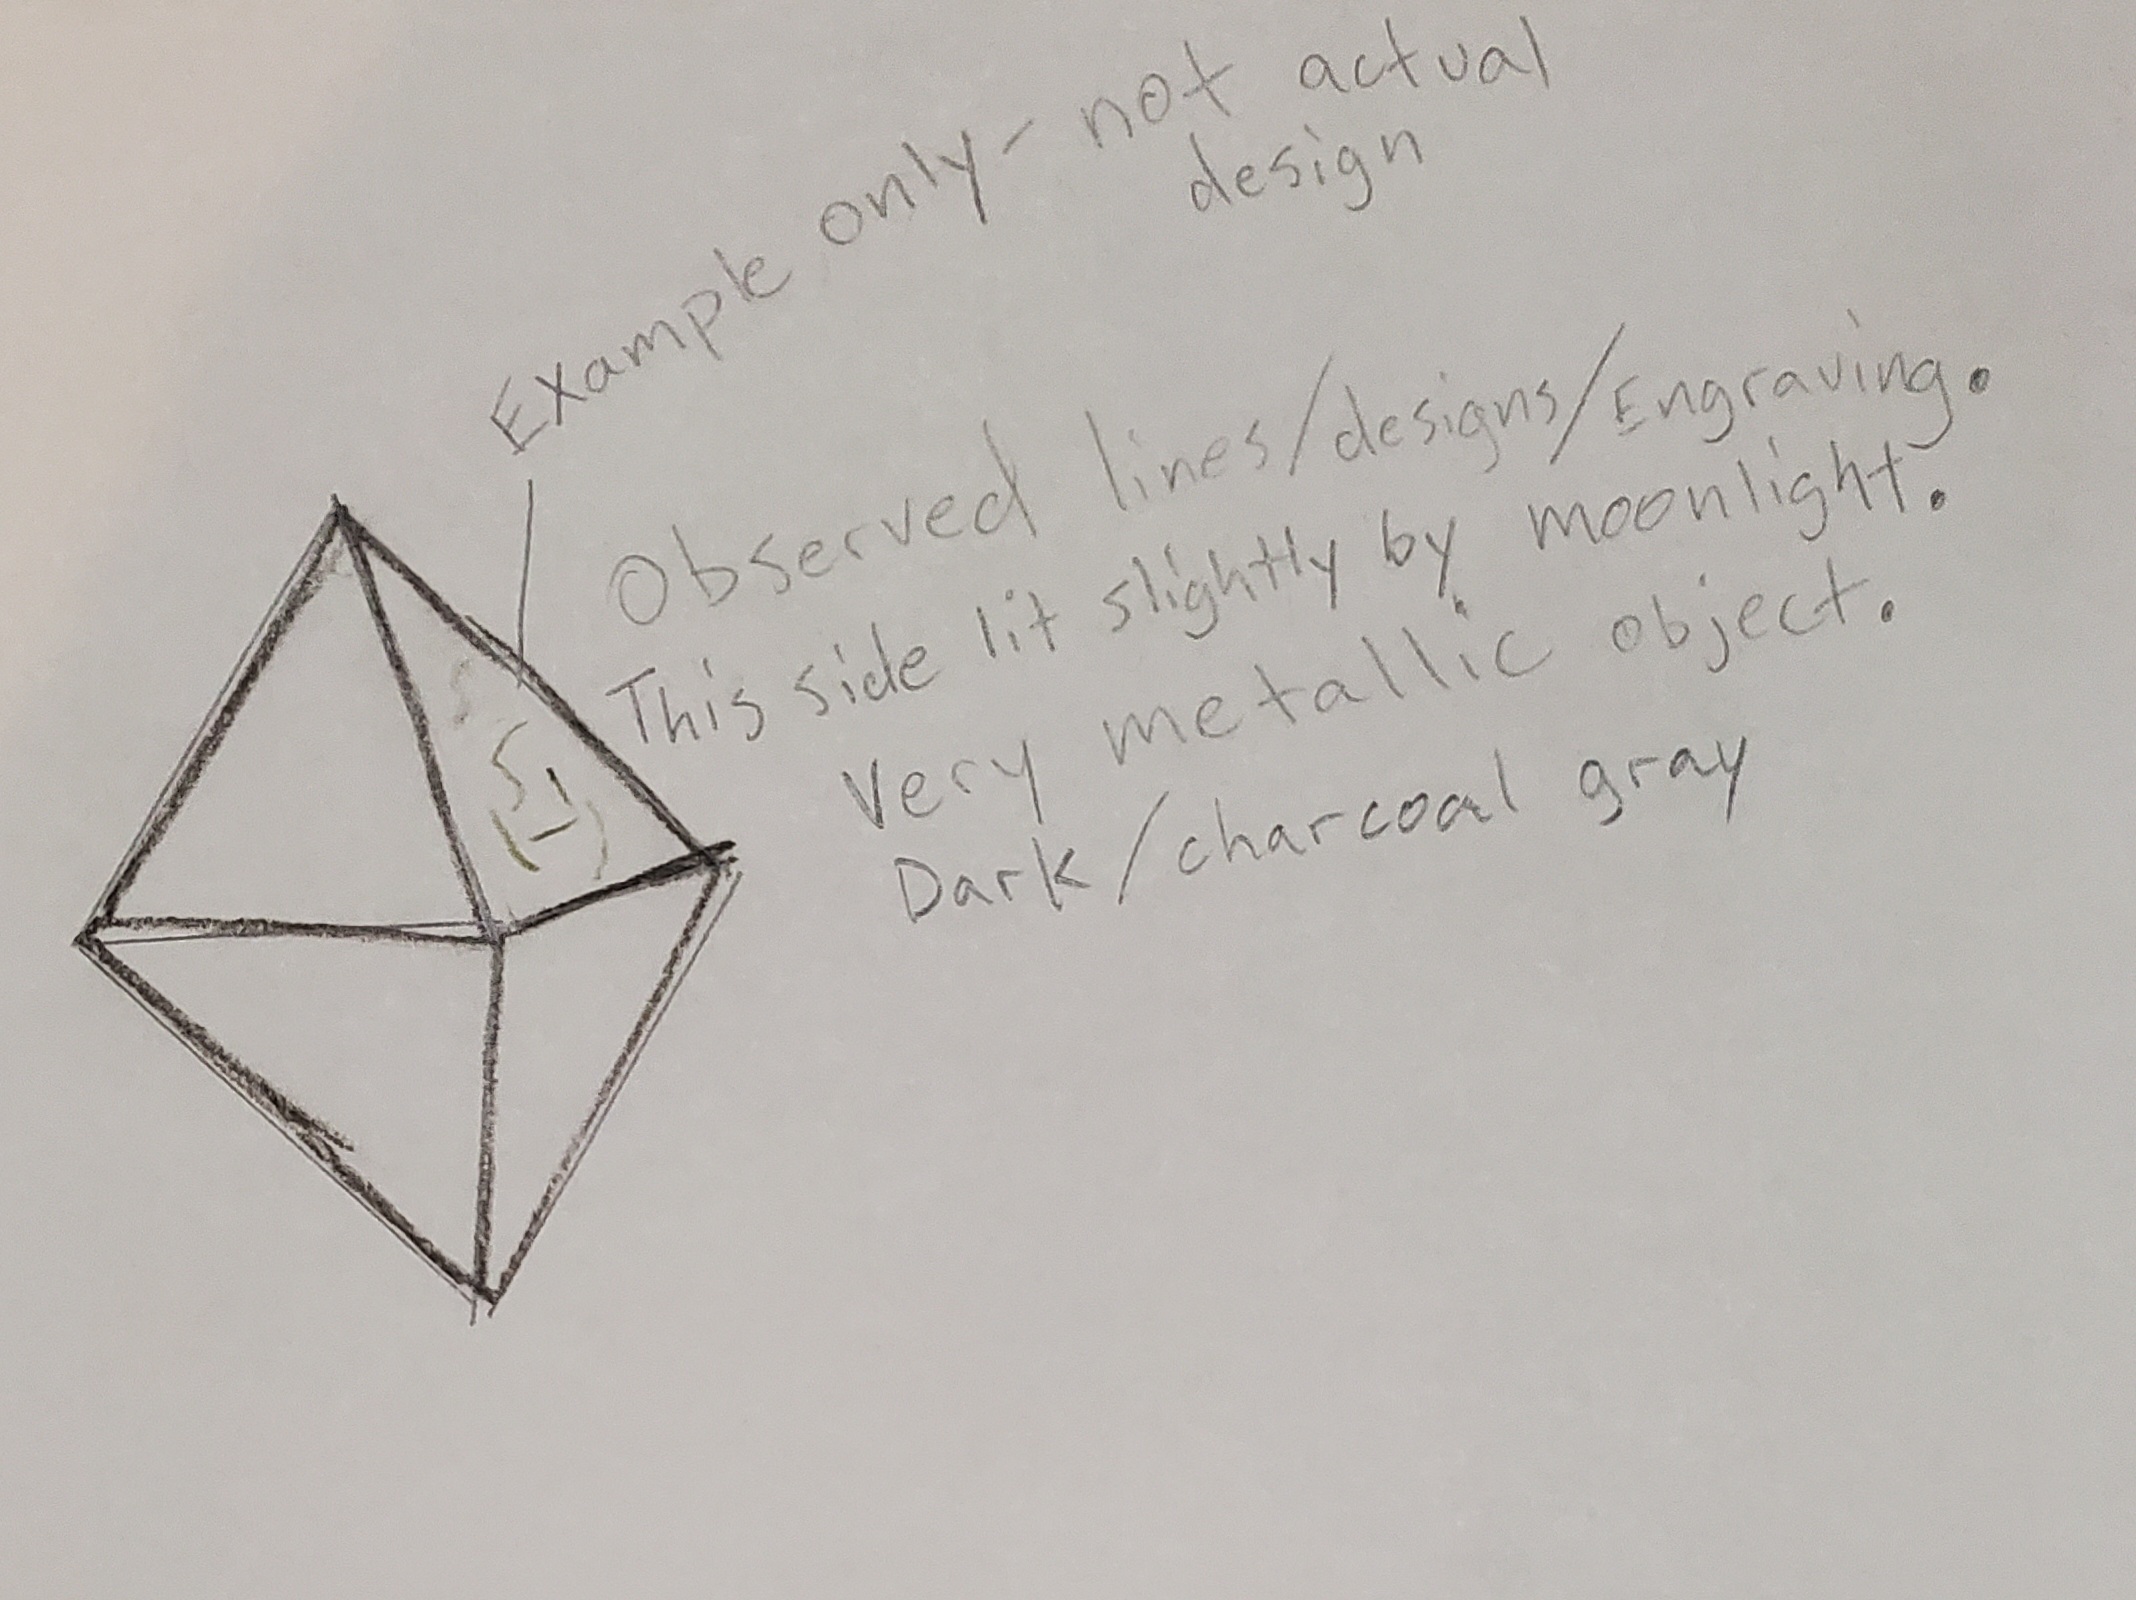 Example only - not actual
design
Observed lines/designs/Engraving.
This side lit slightly by moonlight.
Very metallic object.
Dark/charcoal gray